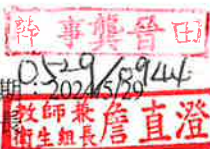 幹事龔晉田
0529/0944
期：2024/5/29
教師兼
衛生組長 詹直澄